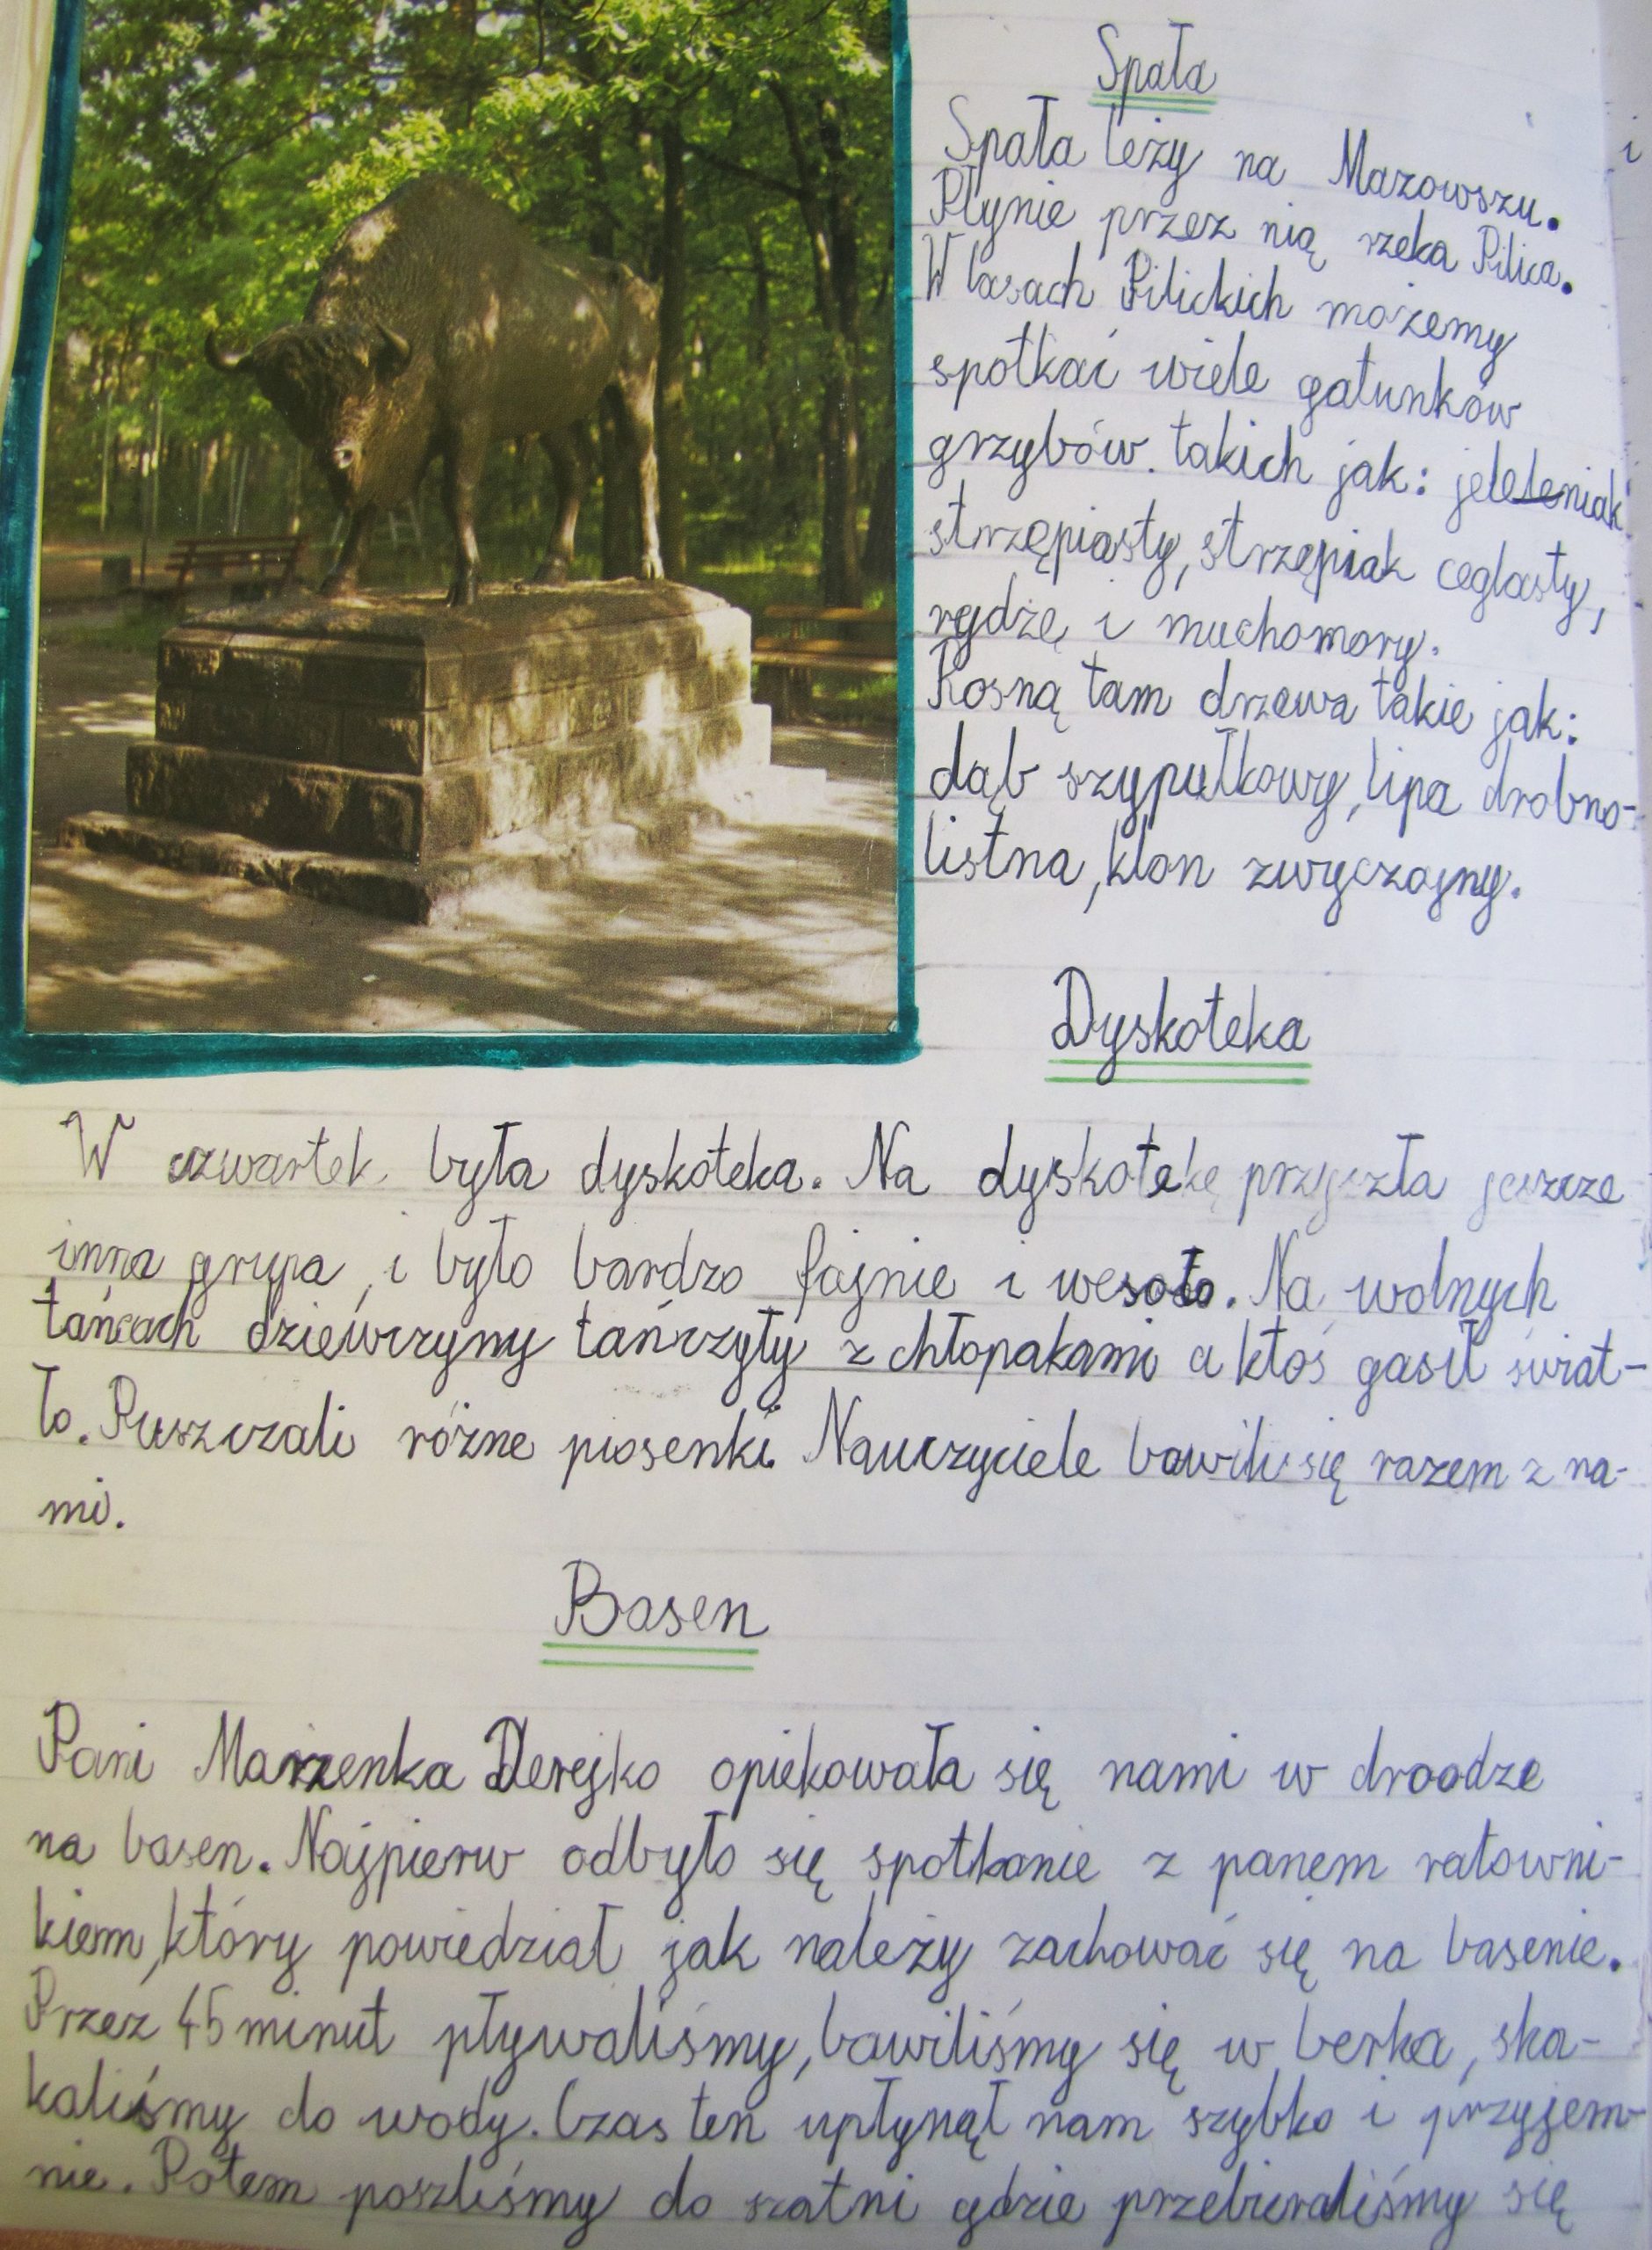 Spała
Spała leży na Mazowszu.
Płynie przez nią rzeka Pilica.
W lasach Pilickich możemy
spotkać wiele gatunków
grzybów. takich jak: jeleleniak
strzępiasty, strzępiak ceglasty,
rydzę i muchomory.
Rosną tam drzewa takie jak:
dąb szypułkowy, lipa drobno-
listna, klon zwyczajny.
Dyskoteka
W czwartek była dyskoteka. Na dyskotekę przyszła jeszcze
inna grupa i było bardzo fajnie i wesoło. Na wolnych
tańcach dziewczyny tańczyły z chłopakami a ktoś gasił świat-
ło. Puszczali różne piosenki. Nauczyciele bawili się razem z na-
mi.
Basen
Pani Marzenka Derejko opiekowała się nami w droodze
na basen. Najpierw odbyło się spotkanie z panem ratowni-
kiem, który powiedział jak należy zachować się na basenie.
Przez 45 minut pływaliśmy, bawiliśmy się w berka, ska-
kaliśmy do wody. Czas ten upłynął nam szybko i przyjem-
nie. Potem poszliśmy do szatni gdzie przebieraliśmy się